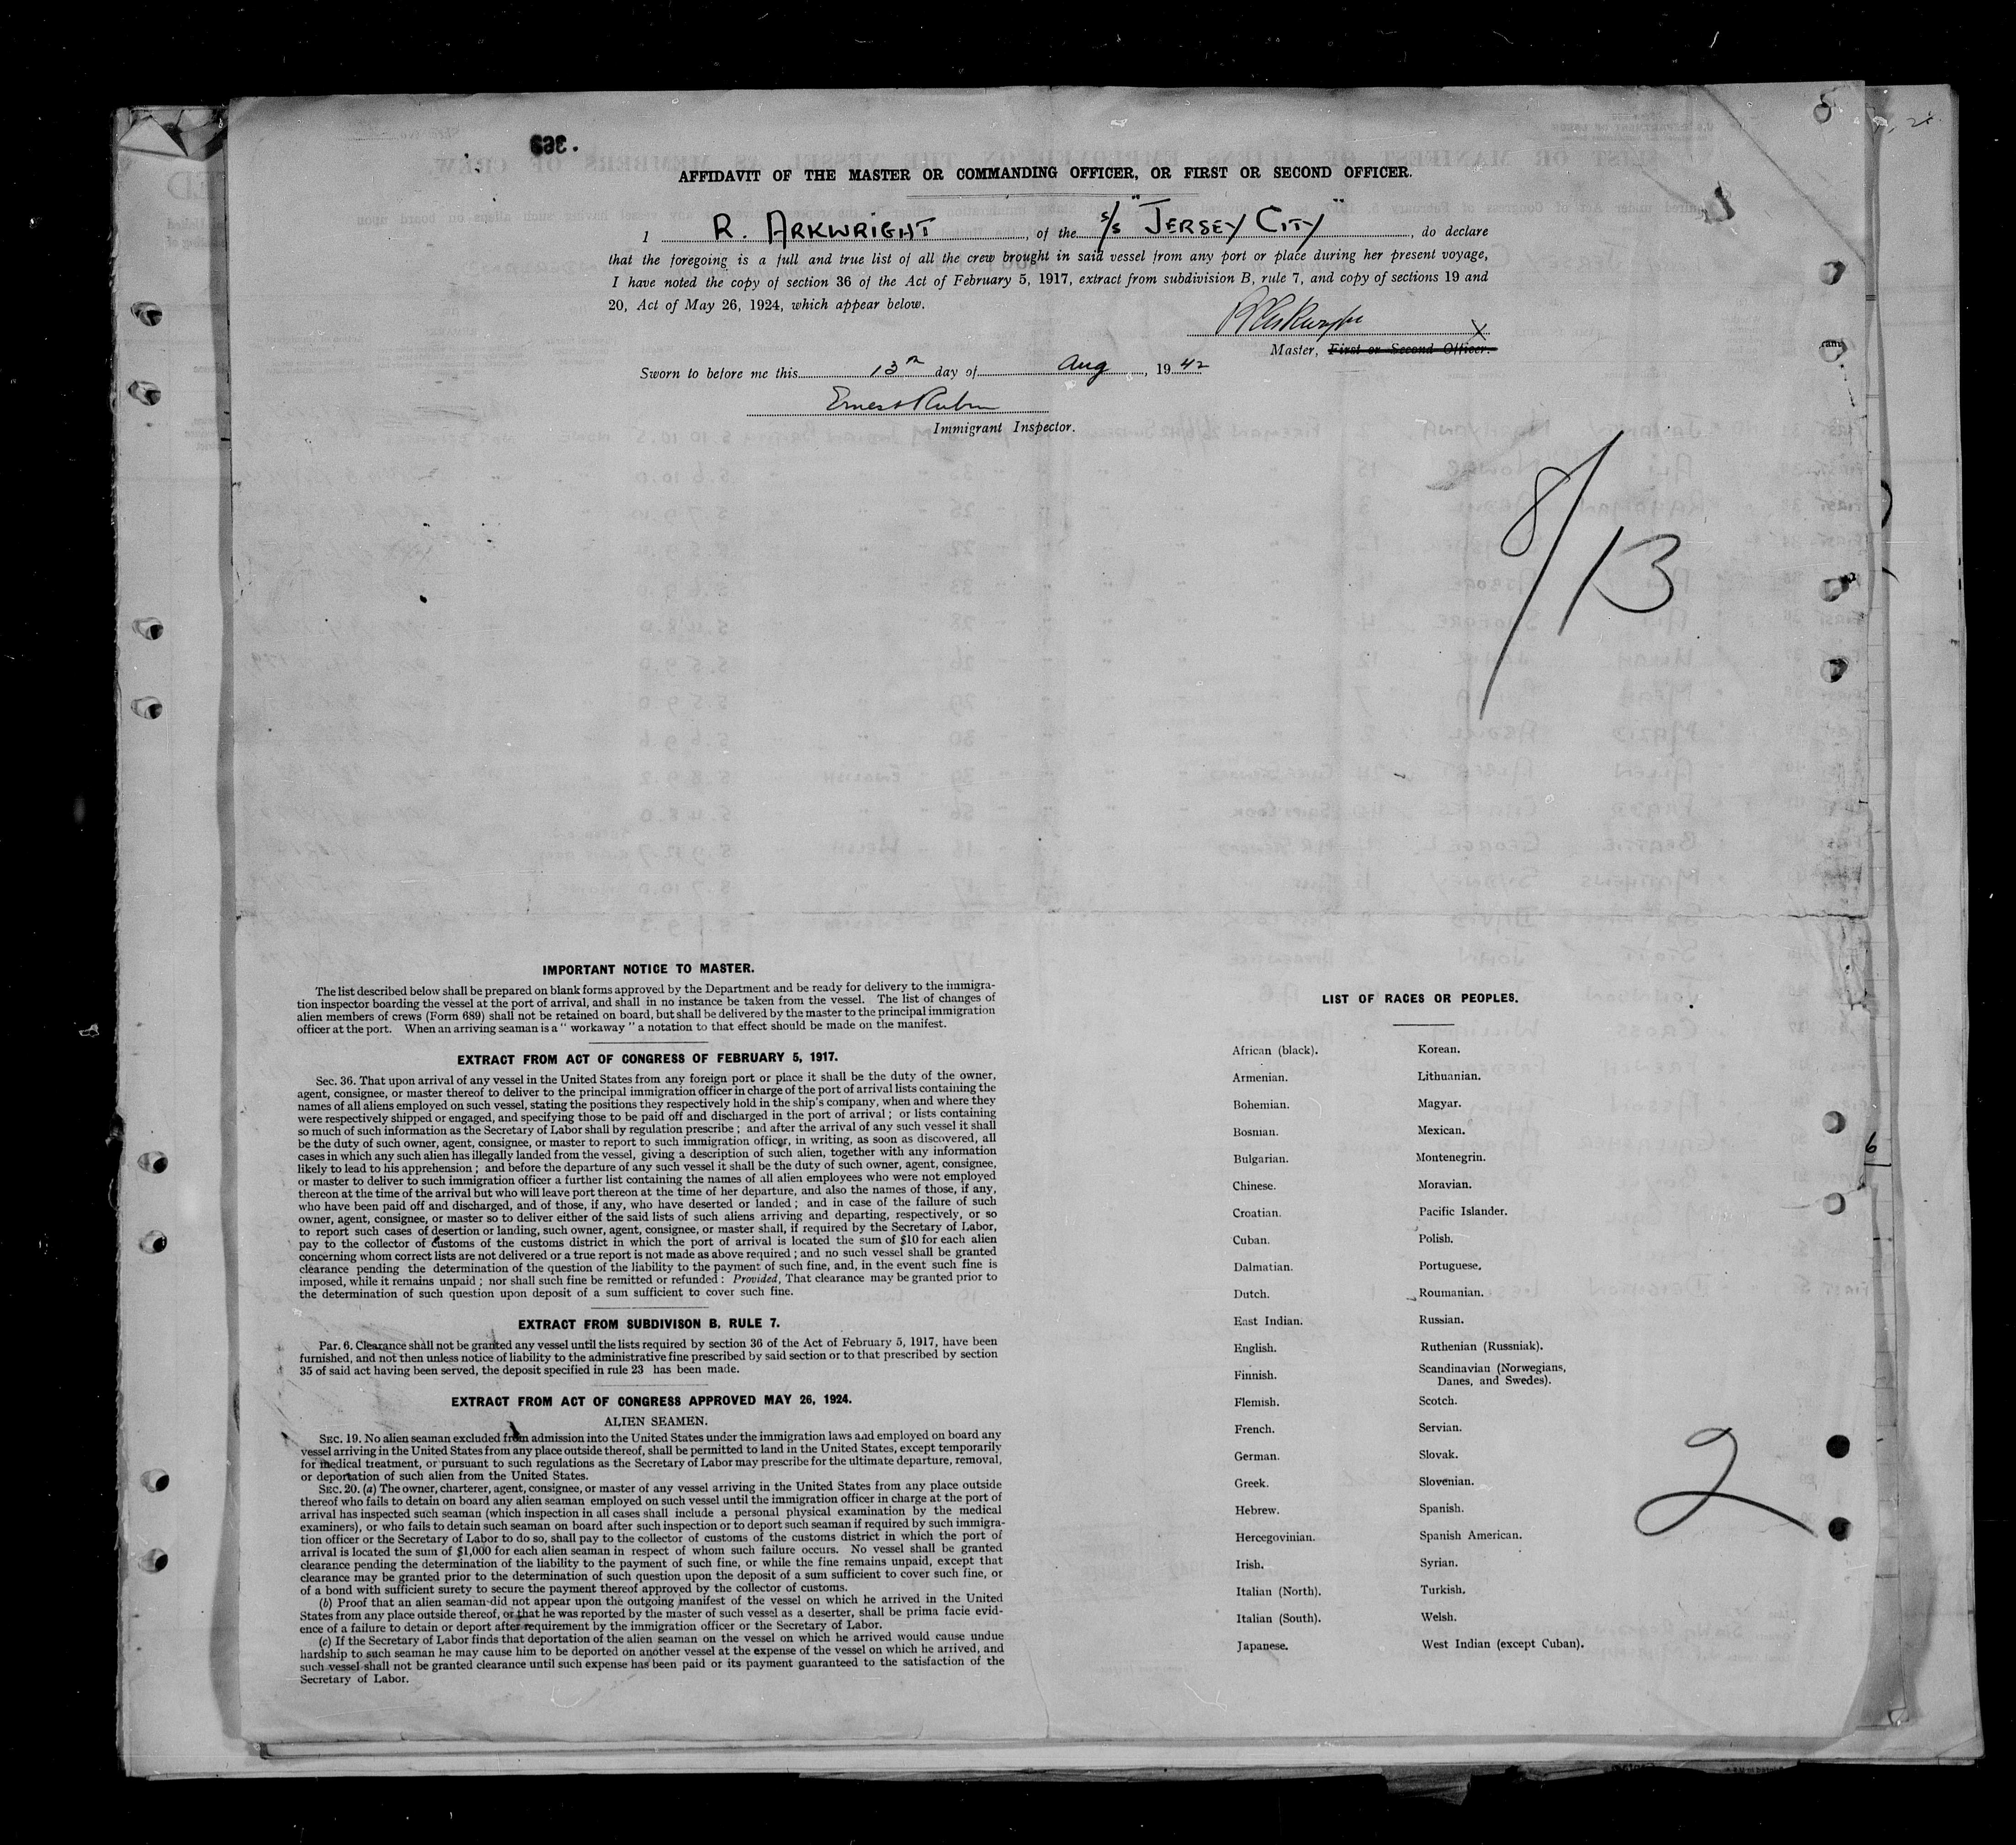 369.
AFFIDAVIT OF THE MASTER OR COMMANDING OFFICER, OR FIRST OR SECOND OFFICER.
I R. ARKWRIGHT, of the S/S "JERSEY CITY", do declare
that the foregoing is a full and true list of all the crew brought in said vessel from any port or place during her present voyage,
I have noted the copy of section 36 of the Act of February 5, 1917, extract from subdivision B, rule 7, and copy of sections 19 and
20, Act of May 26, 1924, which appear below.
R Arkwright X
Master, First or Second Officer.
Sworn to before me this 13th day of Aug, 1942
Ernest Rubin
Immigrant Inspector.
8/13
IMPORTANT NOTICE TO MASTER.
The list described below shall be prepared on blank forms approved by the Department and be ready for delivery to the immigra-
tion inspector boarding the vessel at the port of arrival, and shall in no instance be taken from the vessel. The list of changes of
alien members of crews (Form 689) shall not be retained on board, but shall be delivered by the master to the principal immigration
officer at the port. When an arriving seaman is a " workaway " a notation to that effect should be made on the manifest.
EXTRACT FROM ACT OF CONGRESS OF FEBRUARY 5, 1917.
Sec. 36. That upon arrival of any vessel in the United States from any foreign port or place it shall be the duty of the owner,
agent, consignee, or master thereof to deliver to the principal immigration officer in charge of the port of arrival lists containing the
names of all aliens employed on such vessel, stating the positions they respectively hold in the ship's company, when and where they
were respectively shipped or engaged, and specifying those to be paid off and discharged in the port of arrival ; or lists containing
so much of such information as the Secretary of Labor shall by regulation prescribe ; and after the arrival of any such vessel it shall
be the duty of such owner, agent, consignee, or master to report to such immigration officer, in writing, as soon as discovered, all
cases in which any such alien has illegally landed from the vessel, giving a description of such alien, together with any information
likely to lead to his apprehension ; and before the departure of any such vessel it shall be the duty of such owner, agent, consignee,
or master to deliver to such immigration officer a further list containing the names of all alien employees who were not employed
thereon at the time of the arrival but who will leave port thereon at the time of her departure, and also the names of those, if any,
who have been paid off and discharged, and of those, if any, who have deserted or landed ; and in case of the failure of such
owner, agent, consignee, or master so to deliver either of the said lists of such aliens arriving and departing, respectively, or so
to report such cases of desertion or landing, such owner, agent, consignee, or master shall, if required by the Secretary of Labor,
pay to the collector of customs of the customs district in which the port of arrival is located the sum of $10 for each alien
concerning whom correct lists are not delivered or a true report is not made as above required ; and no such vessel shall be granted
clearance pending the determination of the question of the liability to the payment of such fine, and, in the event such fine is
imposed, while it remains unpaid ; nor shall such fine be remitted or refunded : Provided, That clearance may be granted prior to
the determination of such question upon deposit of a sum sufficient to cover such fine.
EXTRACT FROM SUBDIVISON B, RULE 7.
Par. 6. Clearance shall not be granted any vessel until the lists required by section 36 of the Act of February 5, 1917, have been
furnished, and not then unless notice of liability to the administrative fine prescribed by said section or to that prescribed by section
35 of said act having been served, the deposit specified in rule 23 has been made.
EXTRACT FROM ACT OF CONGRESS APPROVED MAY 26, 1924.
ALIEN SEAMEN.
SEC. 19. No alien seaman excluded from admission into the United States under the immigration laws and employed on board any
vessel arriving in the United States from any place outside thereof, shall be permitted to land in the United States, except temporarily
for medical treatment, or pursuant to such regulations as the Secretary of Labor may prescribe for the ultimate departure, removal,
or deportation of such alien from the United States.
SEC. 20. (a) The owner, charterer, agent, consignee, or master of any vessel arriving in the United States from any place outside
thereof who fails to detain on board any alien seaman employed on such vessel until the immigration officer in charge at the port of
arrival has inspected such seaman (which inspection in all cases shall include a personal physical examination by the medical
examiners), or who fails to detain such seaman on board after such inspection or to deport such seaman if required by such immigra-
tion officer or the Secretary of Labor to do so, shall pay to the collector of customs of the customs district in which the port of
arrival is located the sum of $1,000 for each alien seaman in respect of whom such failure occurs. No vessel shall be granted
clearance pending the determination of the liability to the payment of such fine, or while the fine remains unpaid, except that
clearance may be granted prior to the determination of such question upon the deposit of a sum sufficient to cover such fine, or
of a bond with sufficient surety to secure the payment thereof approved by the collector of customs.
(b) Proof that an alien seaman did not appear upon the outgoing manifest of the vessel on which he arrived in the United
States from any place outside thereof, or that he was reported by the master of such vessel as a deserter, shall be prima facie evid-
ence of a failure to detain or deport after requirement by the immigration officer or the Secretary of Labor.
(c) If the Secretary of Labor finds that deportation of the alien seaman on the vessel on which he arrived would cause undue
hardship to such seaman he may cause him to be deported on another vessel at the expense of the vessel on which he arrived, and
such vessel shall not be granted clearance until such expense has been paid or its payment guaranteed to the satisfaction of the
Secretary of Labor.
LIST OF RACES OR PEOPLES.
African (black). Korean.
Armenian. Lithuanian.
Bohemian. Magyar.
Bosnian. Mexican.
Bulgarian. Montenegrin.
Chinese. Moravian.
Croatian. Pacific Islander.
Cuban. Polish.
Dalmatian. Portuguese.
Dutch. Roumanian.
East Indian. Russian.
English. Ruthenian (Russniak).
Finnish. Scandinavian (Norwegians,
Danes, and Swedes).
Flemish. Scotch.
French. Servian.
German. Slovak.
Greek. Slovenian.
Hebrew. Spanish.
Hercegovinian. Spanish American.
Irish. Syrian.
Italian (North). Turkish.
Italian (South). Welsh.
Japanese. West Indian (except Cuban).
6
2